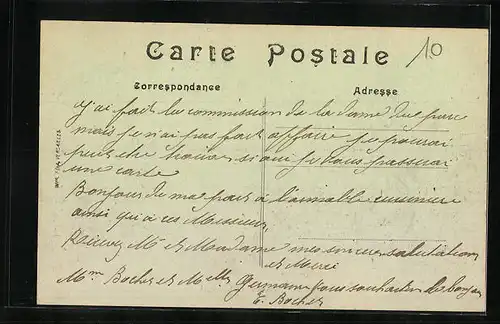 Carte Postale
10
Correspondance
Adresse
J'ai fait la commission de la dame du parc
mais je n'ai pas fait affaire je pourai
peut etre trouver si oui je vous passerai
une carte
Bonjour de ma part à l'aimable cuisinière
ainsi qu'à ces Messieurs
Recevez Mr et Madame mes sincères salutations
et Merci
Mme Boches et Melle Germaine vous souhaite le bonjour
E. Boches